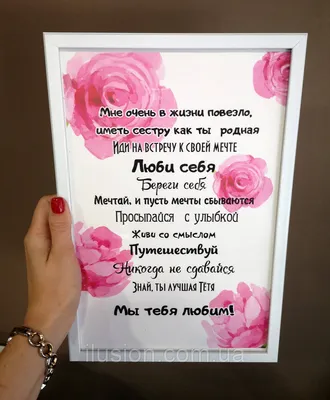 Мне очень в жизни повезло,
иметь сестру как ты родная
Иди на встречу к своей мечте
Люби себя
Береги себя
Мечтай, и пусть мечты сбываются
Просыпайся с улыбкой
Живи со смыслом
Путешествуй
Никогда не сдавайся
Знай, ты лучшая Тётя
Мы тебя любим!
ilusion.com.ua